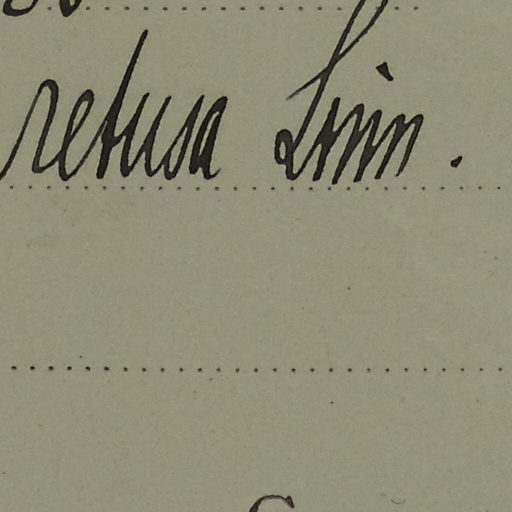 retusa Linn.